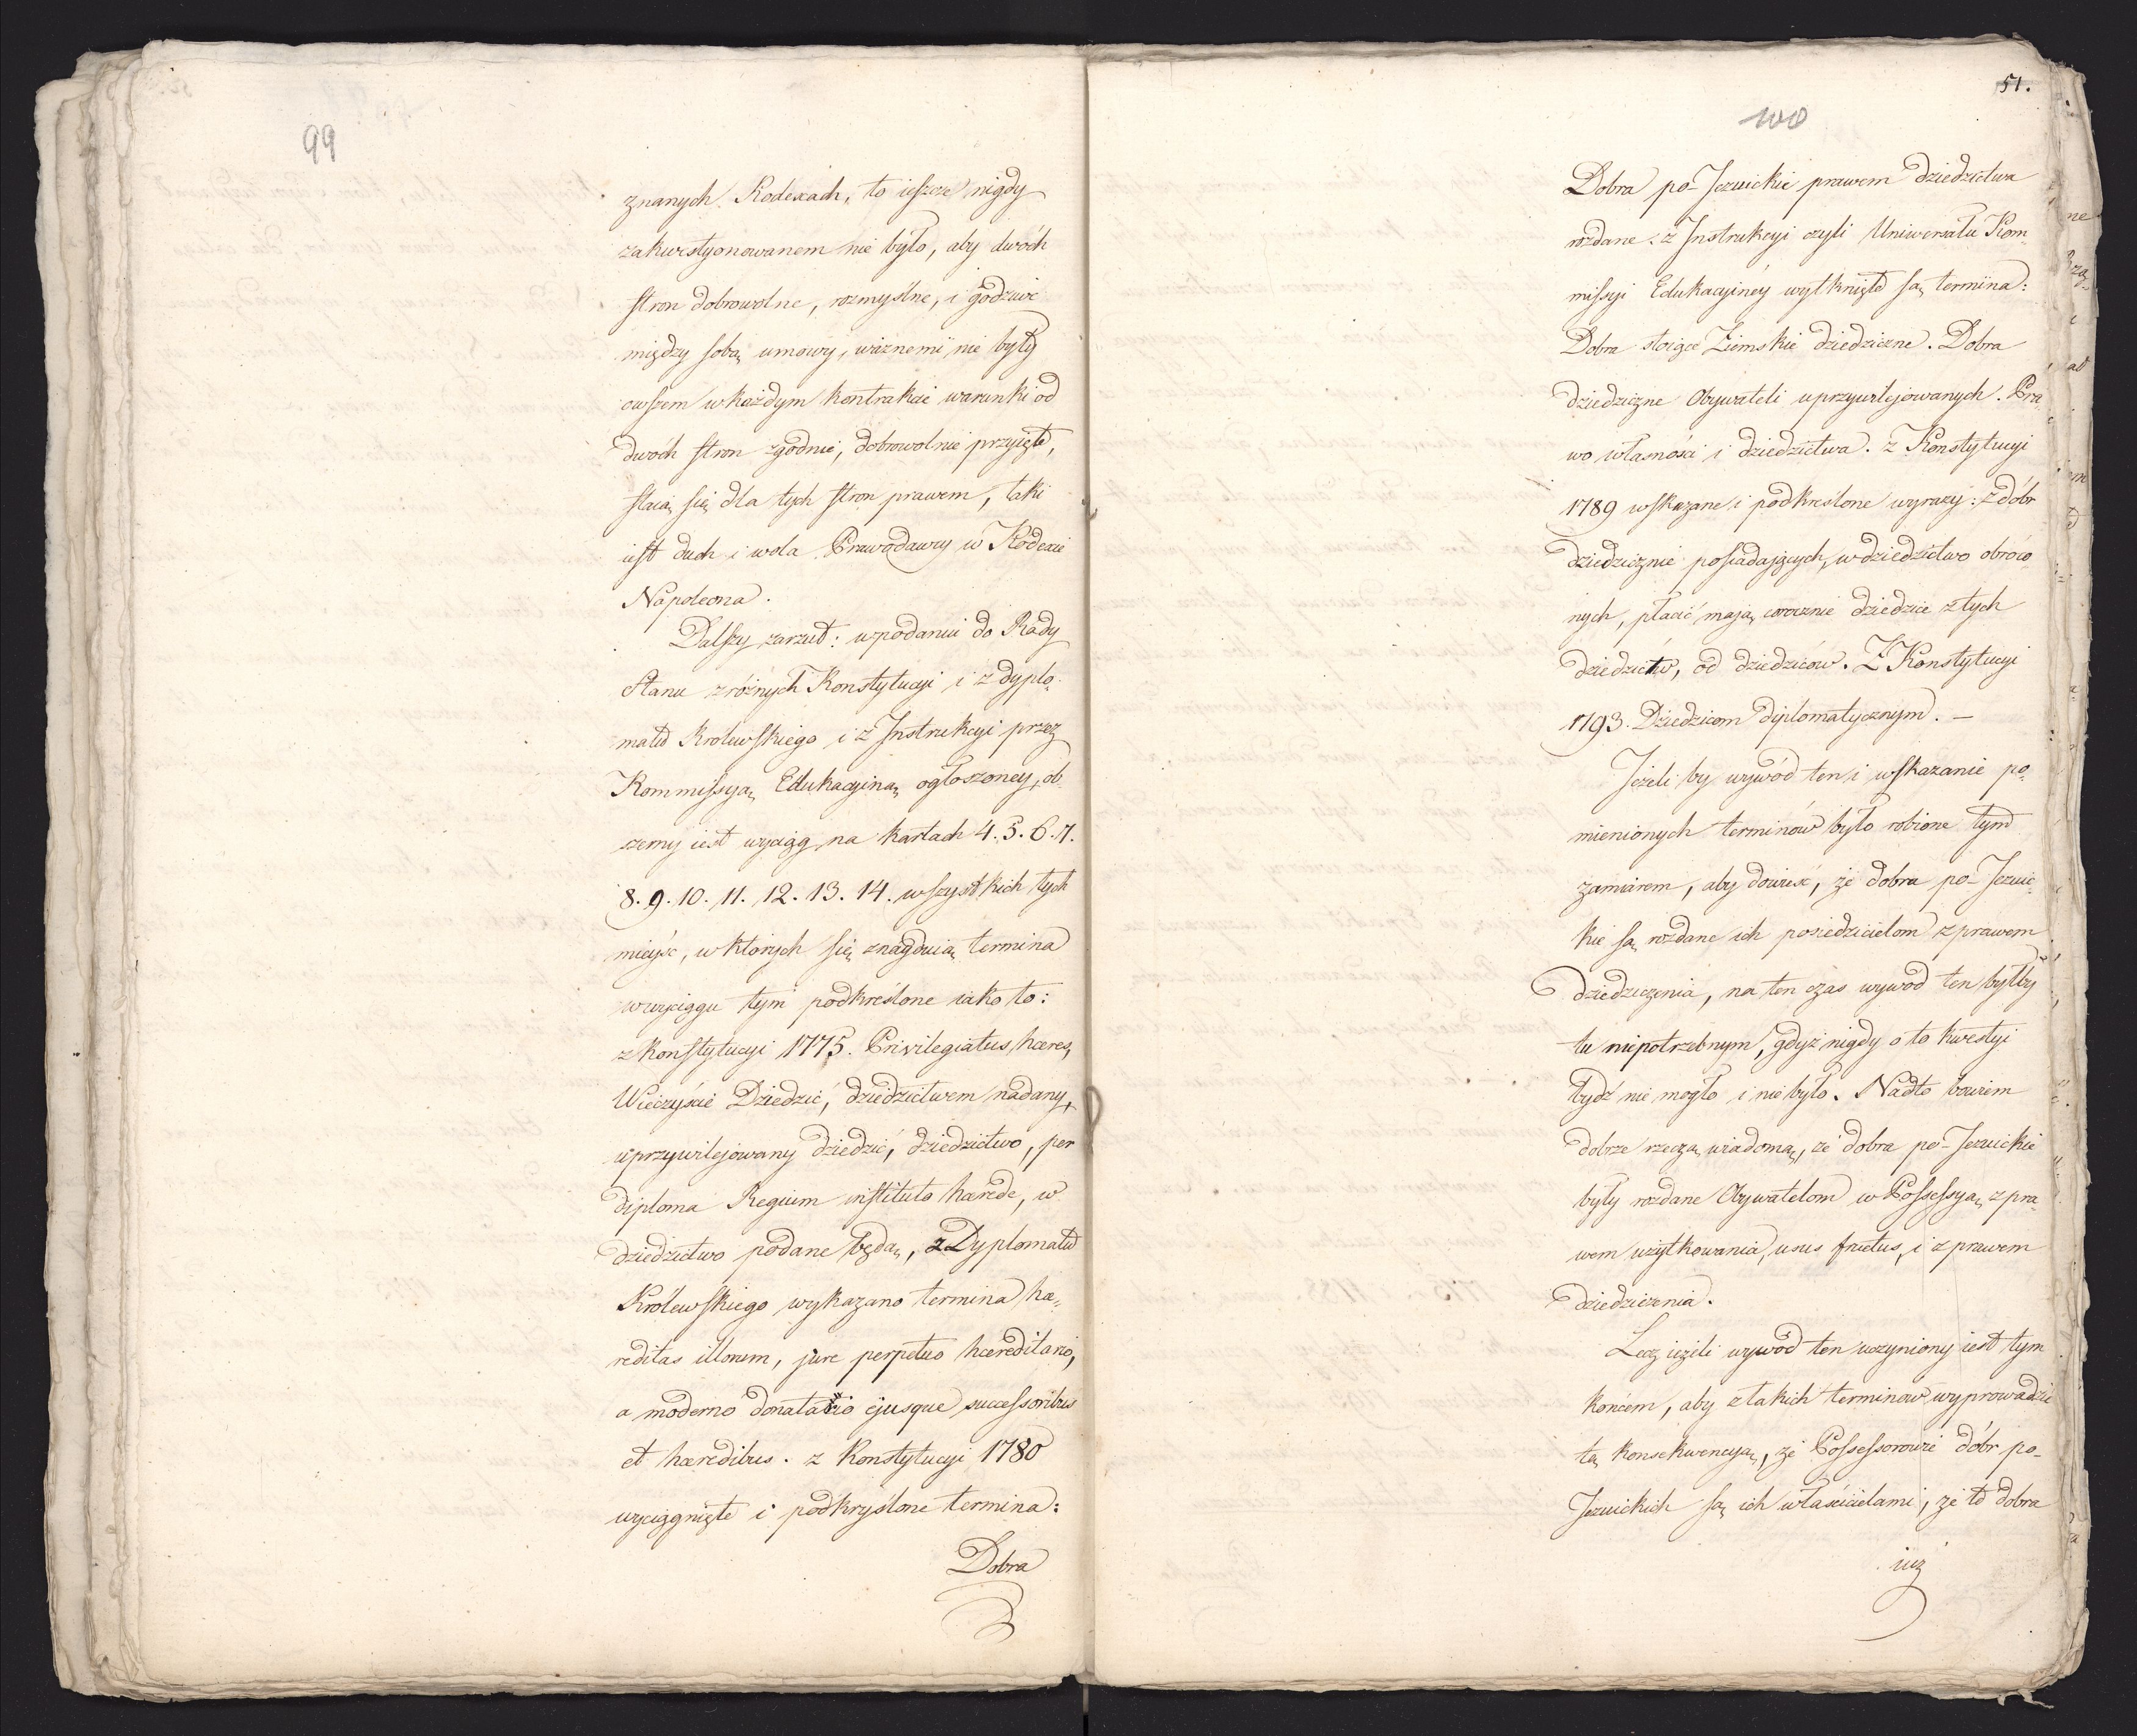 99
znanych Kodexach, to ieszcze nigdy
zakwestyonowanem nie było, aby dwóch
stron dobrowolne, rozmyślne, i godziwe
między sobą umowy, ważnemi nie były
owszem w każdym kontrakcie warunki od
dwóch stron zgodnie, dobrowolnie przyięte,
staią się dla tych stron prawem, taki
iest duch i wola Prawodawcy w Kodexie
Napoleona.
Dalszy zarzut: w podaniu do Rady
Stanu z różnych Konstytucyi i z dyplo„
matu Krolewskiego i z Instrukcyi przez
Kommissyą Edukacyiną ogłoszoney, ob„
szerny iest wyciąg na kartach 4. 5. 6. 7.
8. 9. 10. 11. 12. 13. 14. wszystkich tych
mieysc, w ktorych się znayduią termina
w wyciągu tym podkreślone iako to:
z konstytucyi 1775. Privilegiatus hæres,
Wieczyście Dziedzic, dziedzictwem nadany,
uprzywilejowany dziedzic, dziedzictwo, per
diploma Regium instituto hærede, w
dziedzictwo podane będą, z Dyplomatu
Królewskiego wykazano termina hæ„
reditas illorum, jure perpetuo hæreditario,
a moderno donatario ejusque successoribus
et hæredibus. z Konstytucyi 1780
wyciągnięte i podkryślone termina:
Dobra
51.
100
Dobra po-Jezuickie prawem dziedzictwa
rozdane. z Instrukcyi czyli Uniwersału Kom„
missyi Edukacyiney wytknięte są termina:
Dobra stoiące Ziemskie dziedziczne. Dobra
dziedziczne Obywateli uprzywilejowanych. Pra„
wo własności i dziedzictwa. z Konstytucyi
1789 wskazane i podkreślone wyrazy: z dóbr
dziedzicznie posiadających, w dziedzictwo obróco„
nych, płacić mają corocznie dziedzice z tych
dziedzictw, od dziedziców. Z Konstytucyi
1793. Dziedzicom dyplomatycznym. —
Jeżeli by wywód ten i wskazanie po„
mienionych terminów było robione tym
zamiarem, aby dowieść, że dobra po-Jezuic„
kie są rozdane ich posiedzicielom z prawem
dziedziczenia, na ten czas wywód ten byłby
tu niepotrzebnym, gdyż nigdy o to kwestyi
bydź nie mogło i nie było. Nadto bowiem
dobrze rzeczą wiadomą, że dobra po-Jezuickie
były rozdane Obywatelom w Possessyą z pra„
wem użytkowania, usus fructus, i z prawem
dziedziczenia.
Lecz ieżeli wywód ten uczyniony iest tym
końcem, aby z takich terminów wyprowadzić
tą konsekwencyą, że Possessorowie dóbr po-
Jezuickich są ich właścicielami, że te dobra
iuż